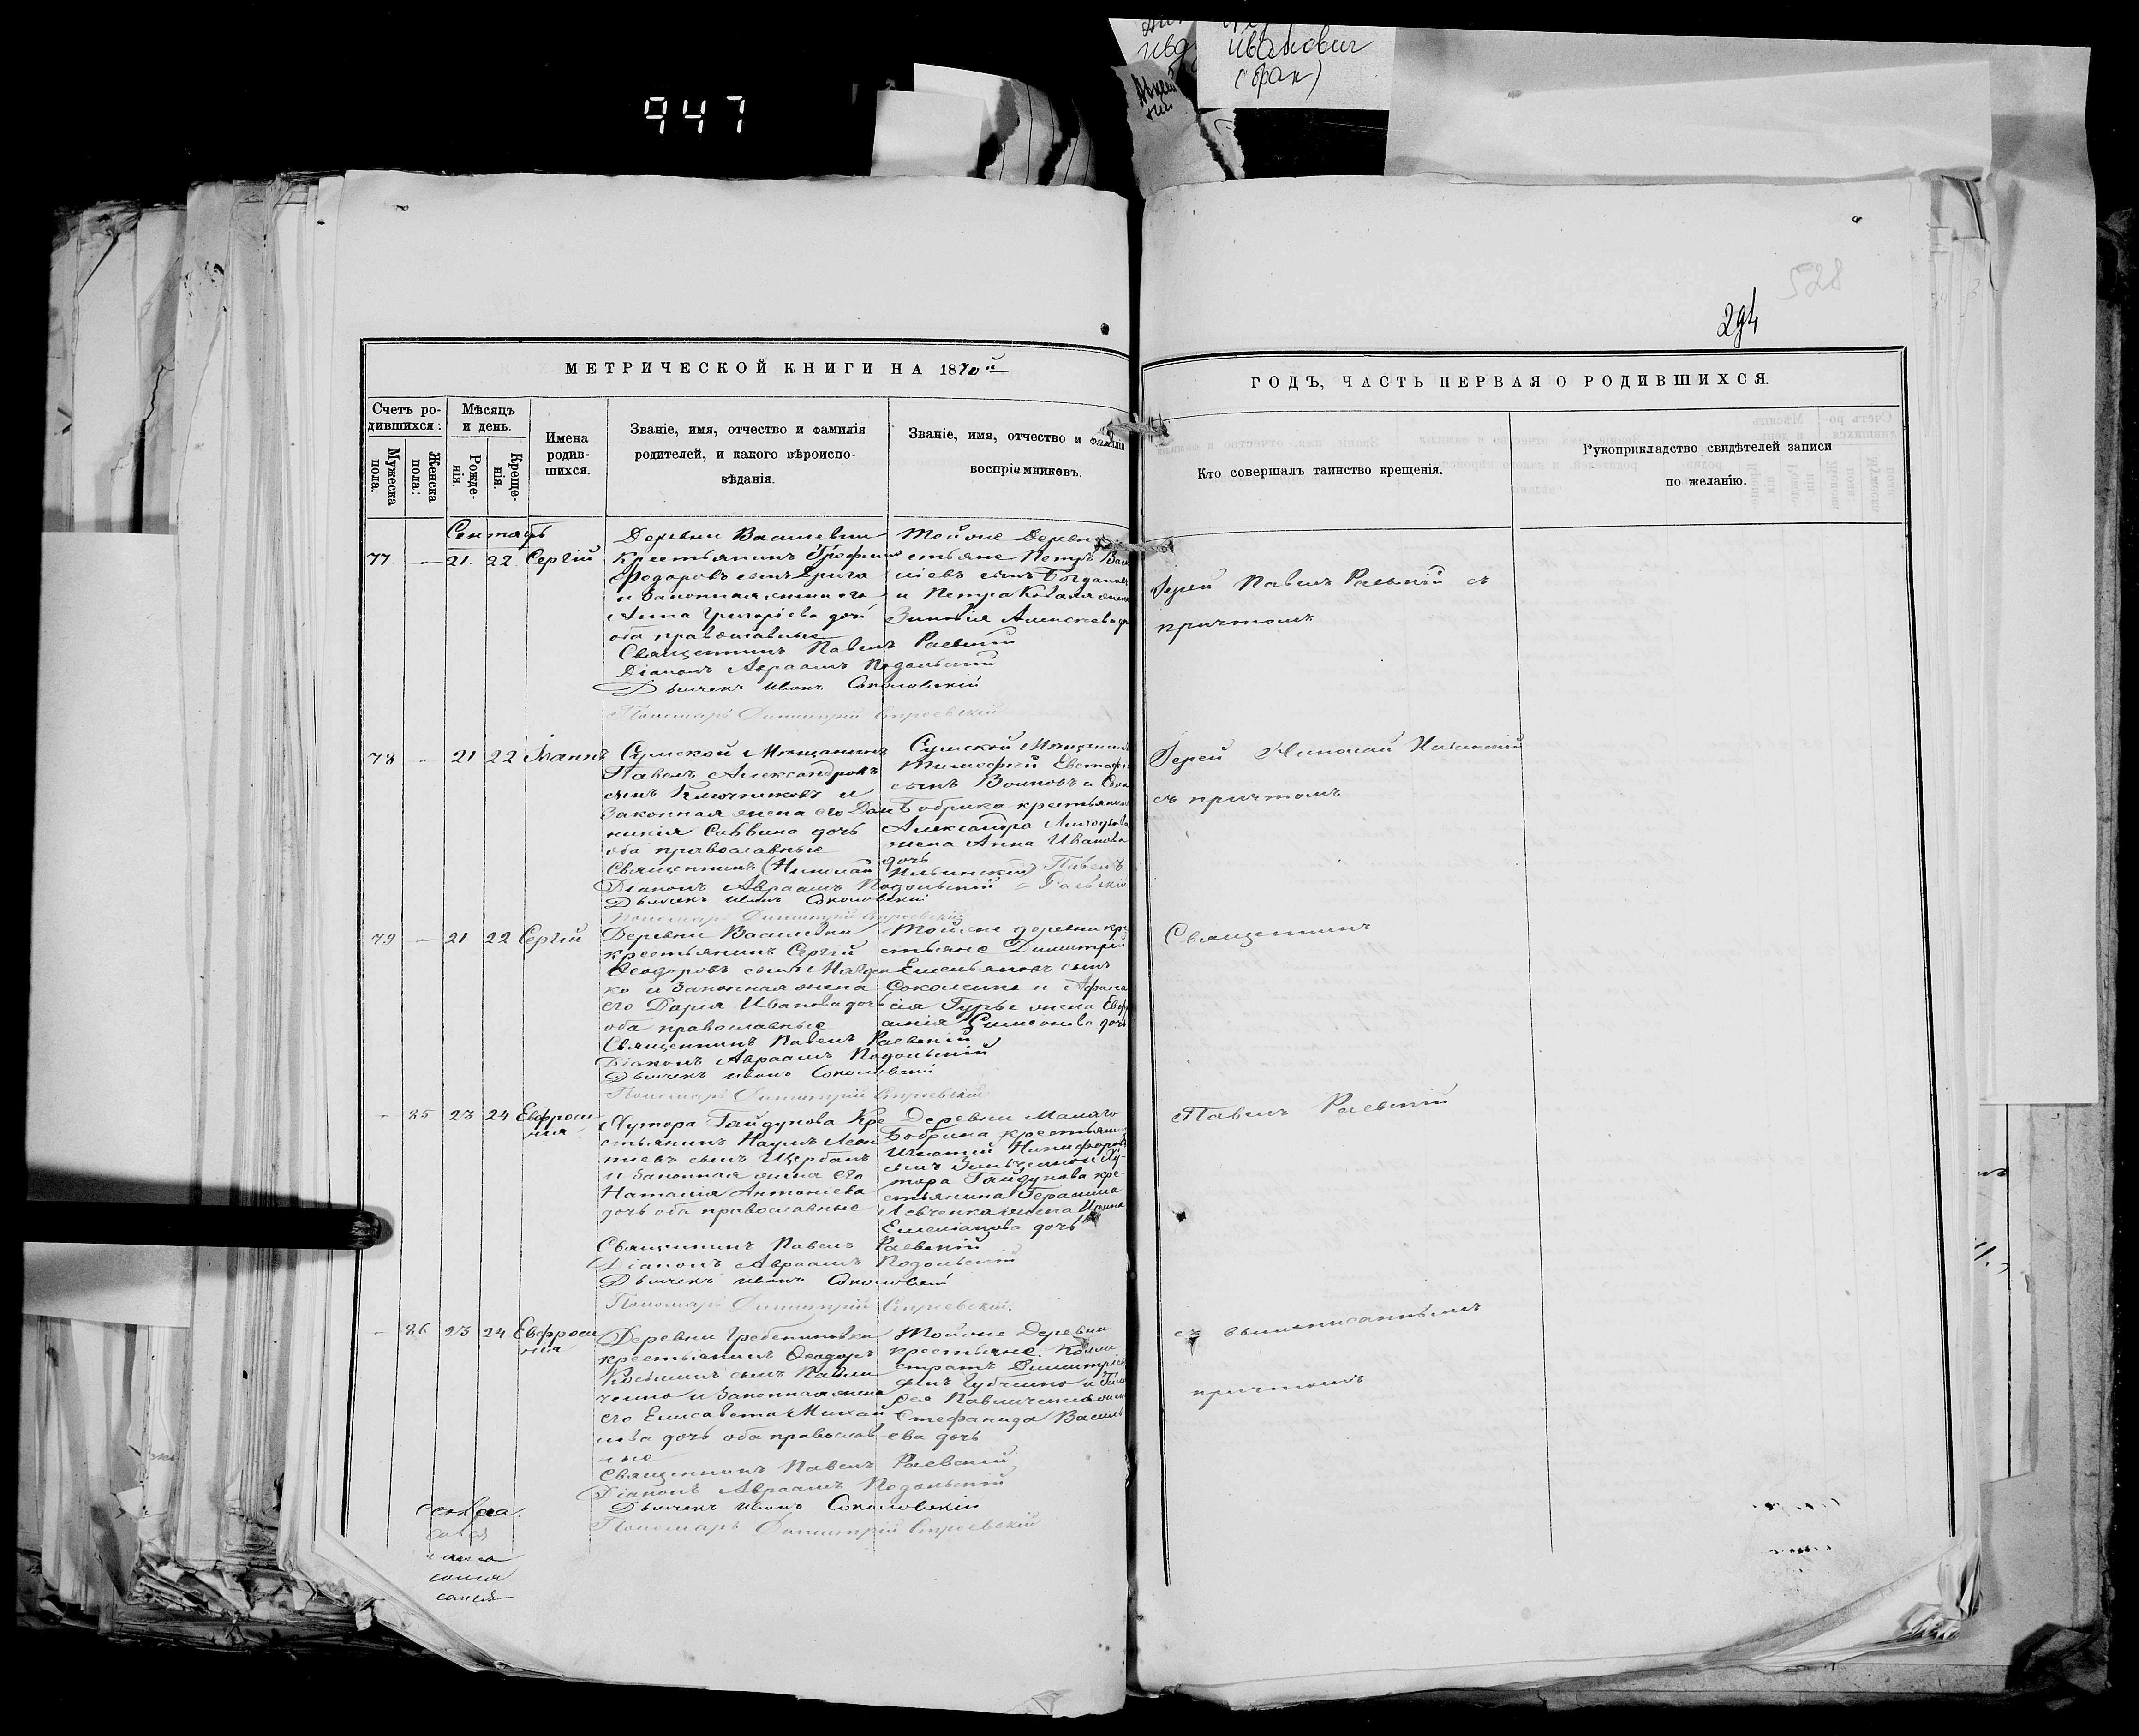 Иванович
(брак)
947
528
294
МЕТРИЧЕСКОЙ КНИГИ НА 1870й
ГОДЪ, ЧАСТЬ ПЕРВАЯ О РОДИВШИХСЯ.
Счетъ ро-
дившихся:
Мужеска
пола.
Женска
пола:
Мѣсяцъ
и день.
Рожде-
нія.
Креще-
нія.
Имена
родив-
шихся.
Званіе, имя, отчество и фамилія
родителей, и какого вѣроиспо-
вѣданія.
Званіе, имя, отчество и фамилія
воспріемниковъ.
Кто совершалъ таинство крещенія.
Рукоприкладство свидѣтелей записи
по желанію.
Сентябрь
77 — 21. 22. Сергій
Деревни Василевки
крестьянинъ Трофимъ
Федоровъ сынъ
и законная жена его
Анна Григоріева дочь
оба православные
Тойже Деревни
стьяне Петръ
сынъ Богданов
и Петра Коваля жена
Зиновія Алексеева
Священникъ Павелъ Раевскій
Діаконъ Авраамъ Подольскій
Дьячекъ Иванъ Соколовскій
Пономарь Димитрій
Іерей Павелъ Раевскій съ
причтомъ
78 - 21 22 Іоаннъ
Сумской Мѣщанинъ
Павелъ Александровъ
сынъ Ключниковъ и
законная жена его Дом
никія Саввина дочь
оба православные
Сумской Мѣщанинъ
Тимофей Евстафі
сынъ Воиновъ и
Бобрика крестьянина
Александра
жена Анна Иванова
дочь
Священникъ (Николай Ильинскій) Павелъ
Діаконъ Авраамъ Подольскій Раевскій
Дьячекъ Иванъ Соколовскій
Пономарь Димитрій
Іерей Николай Ильинскій
съ причтомъ
79 — 21 22 Сергій
Деревни Василевки
крестьянинъ Сергій
Феодоровъ сынъ
ко и законная жена
его Дарія Иванова дочь
оба православные
Тойже деревни кре
стьяне Димитрій
Емельяновъ сынъ
и Афана
сія Гурье жена Евф
Симеонова дочь
Священникъ Павелъ Раевскій
Діаконъ Авраамъ Подольскій
Дьячекъ Иванъ Соколовскій
Пономарь Димитрій
Священникъ
— 85 23 24 Евфроси
нія
Хутора Гайдукова Кре
стьянинъ Наумъ Леон
тіевъ сынъ Щербакъ
и законная жена его
Наталія Антоніева
дочь оба православные
Деревни Малаго
Бобрика крестьянинъ
Игнатій Никифоровъ
сынъ
тора Гайдукова кре-
стьянина Герасима
Левченка жена
Емеліанова дочь
Священникъ Павелъ Раевскій
Діаконъ Авраамъ Подольскій
Дьячекъ Иванъ Соколовскій
Пономарь Димитрій
Павелъ Раевскій
— 86 23 24 Евфроси
нія
Деревни Гребениковки
крестьянинъ Феодоръ
Косьминъ сынъ Павли
ченко и законная жена
его Елисавета Михаи
лова дочь оба православ
ные
Тойже Деревни
крестьяне Кали
стратъ Димитріев
сынъ Губченко и
Павличенка жена
Стефанида Василь
ева дочь
Священникъ Павелъ Раевскій
Діаконъ Авраамъ Подольскій
Дьячекъ Иванъ Соколовскій
Пономарь Димитрій
съ вышеписаннымъ
причтомъ